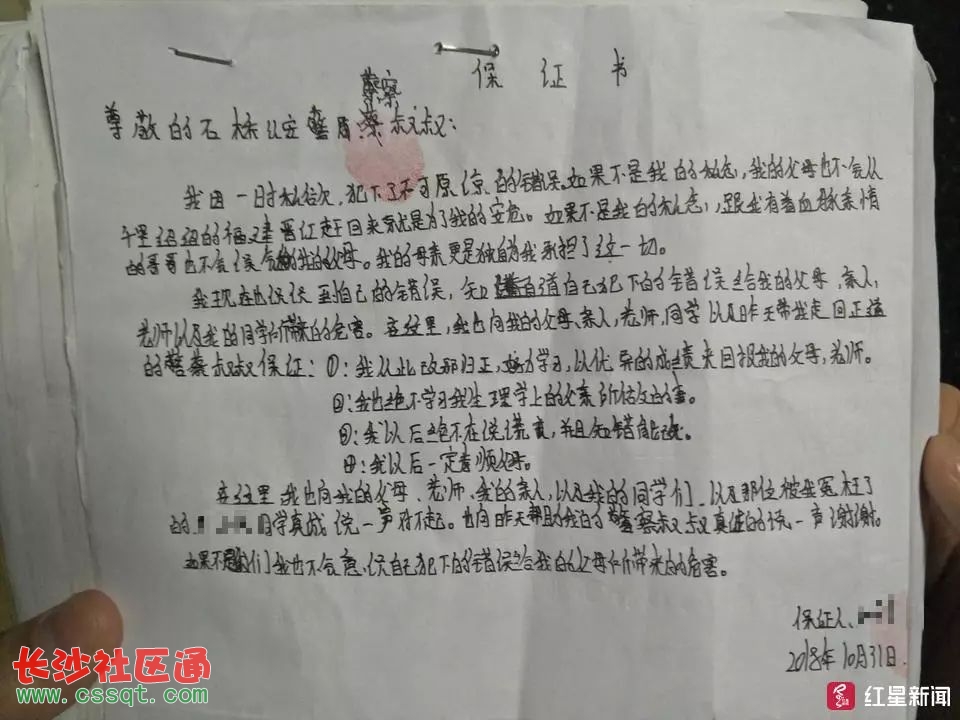 保 证 书
警察
尊敬的石桥公安警局蔡叔叔：
我因一时私欲，犯下了不可原谅的错误。如果不是我的私念，我的父母也不会从
千里迢迢的福建晋江赶回来就是为了我的安危。如果不是我的私念，跟我有着血脉亲情
的哥哥也不会误会我的父母。我的母亲更是独自为我承担了这一切。
我现在也认识到自己的错误，知道自己犯下的错误给我的父母、亲人、
老师以及我的同学们带来的危害。在这里，我也向我的父母、亲人、老师、同学以及昨天带我走回正道
的警蔡叔叔保证：①：我从此改邪归正，努力学习，以优异的成绩来回报我的父母，老师。
②：我也绝不学习我生理学上的父亲所做的事。
③：我以后绝不在说谎言，并且知错自改。
④：我以后一定孝顺父母。
在这里我也向我的父母、老师、我的亲人，以及我的同学们，以及那位被我冤枉了
的 同学真诚说一声对不起。也向昨天帮助我的警察叔叔真诚的说一声谢谢。
如果不是你们我也不会意识自己犯下的错误给我的父母们所带来的危害。
保证人、
2018年10月31日.
长沙社区通
www.cssqt.com
红星新闻